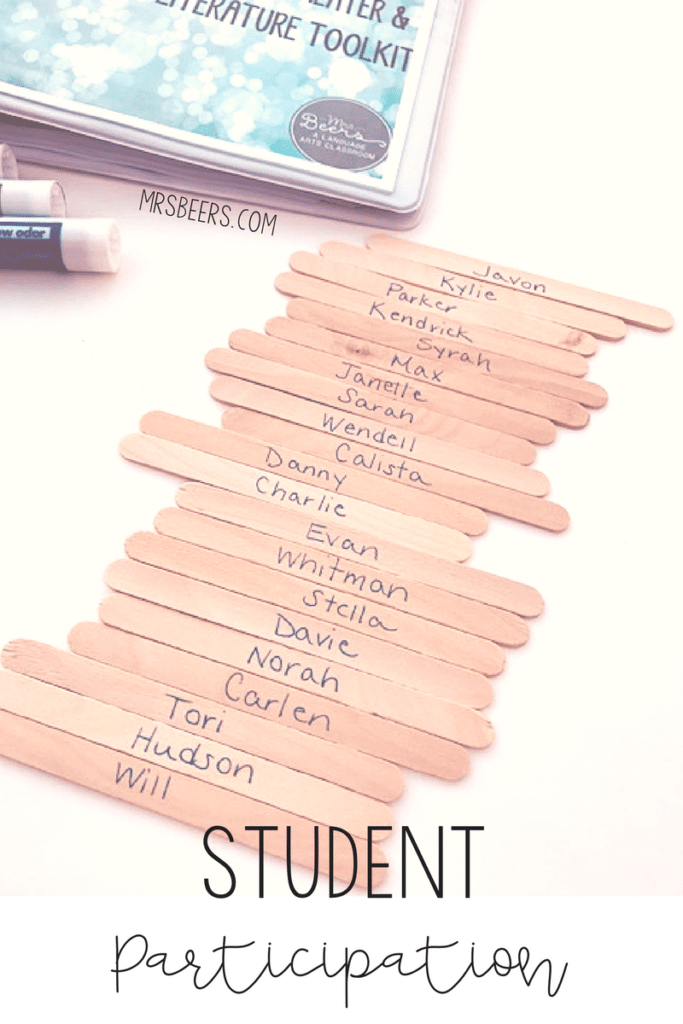 &
LITERATURE TOOLKIT
Mrs.
Beers
A LANGUAGE
ARTS CLASSROOM
MRSBEERS.COM
low odor
Javon
Kylie
Parker
Kendrick
Syrah
Max
Janelle
Sarah
Wendell
Calista
Danny
Charlie
Evan
Whitman
Stella
Davie
Norah
Carlen
Tori
Hudson
Will
STUDENT
Participation